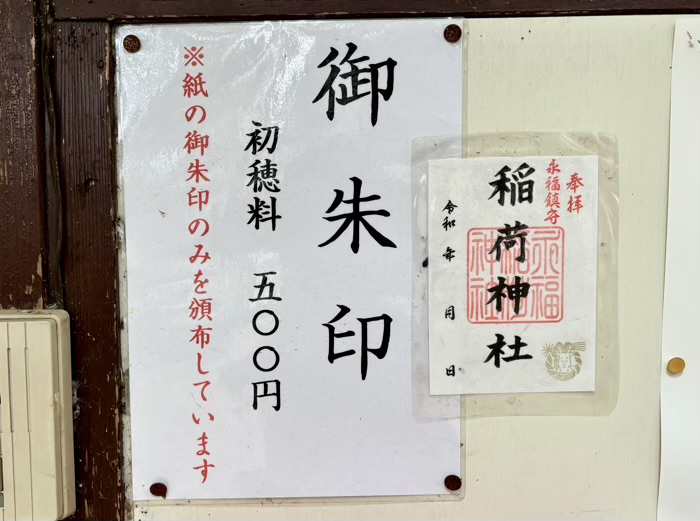 御朱印
初穂料 五〇〇円
※紙の御朱印のみを頒布しています
奉拝
永福鎮守
稲荷神社
令和 年 月 日